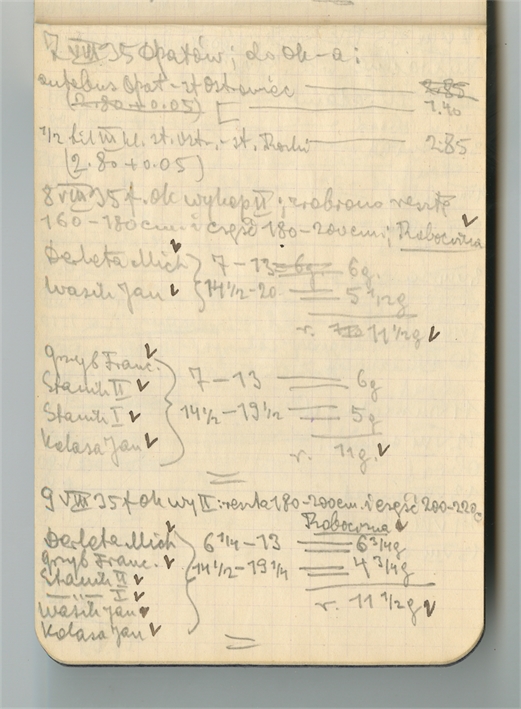 7 VIII 35 Opatów; do Ok-a:
autobus Opat.-st. Ostrowiec 2.85
(2.80+0.05) 1.40
1/2 bil III kl. st. Ostr.-st. 2.85
(2.80+0.05)
8 VIII 35 f. Ok wykop II; zrobiono resztę
160-180cm. i część 180-200cm; Robocizna
Derleta Mich 7-13 = 6g. 6g.
Wasik Jan 14 1/2-20 5 1/2g
r. 11 1/2g
Grzyb Franc.
Stanik II 7-13 6g
Stanik I 14 1/2-19 1/2 5g
Kolasa Jan r. 11g.
9 VIII 35 f. Ok wy II: reszta 180-200cm. i część 200-220
Robocizna
Derleta Mich 6 1/4-13 6 3/4g
Grzyb Franc. 14 1/2-19 1/4 4 3/4g
Stanik II
—„— I r. 11 1/2g
Wasik Jan
Kolasa Jan